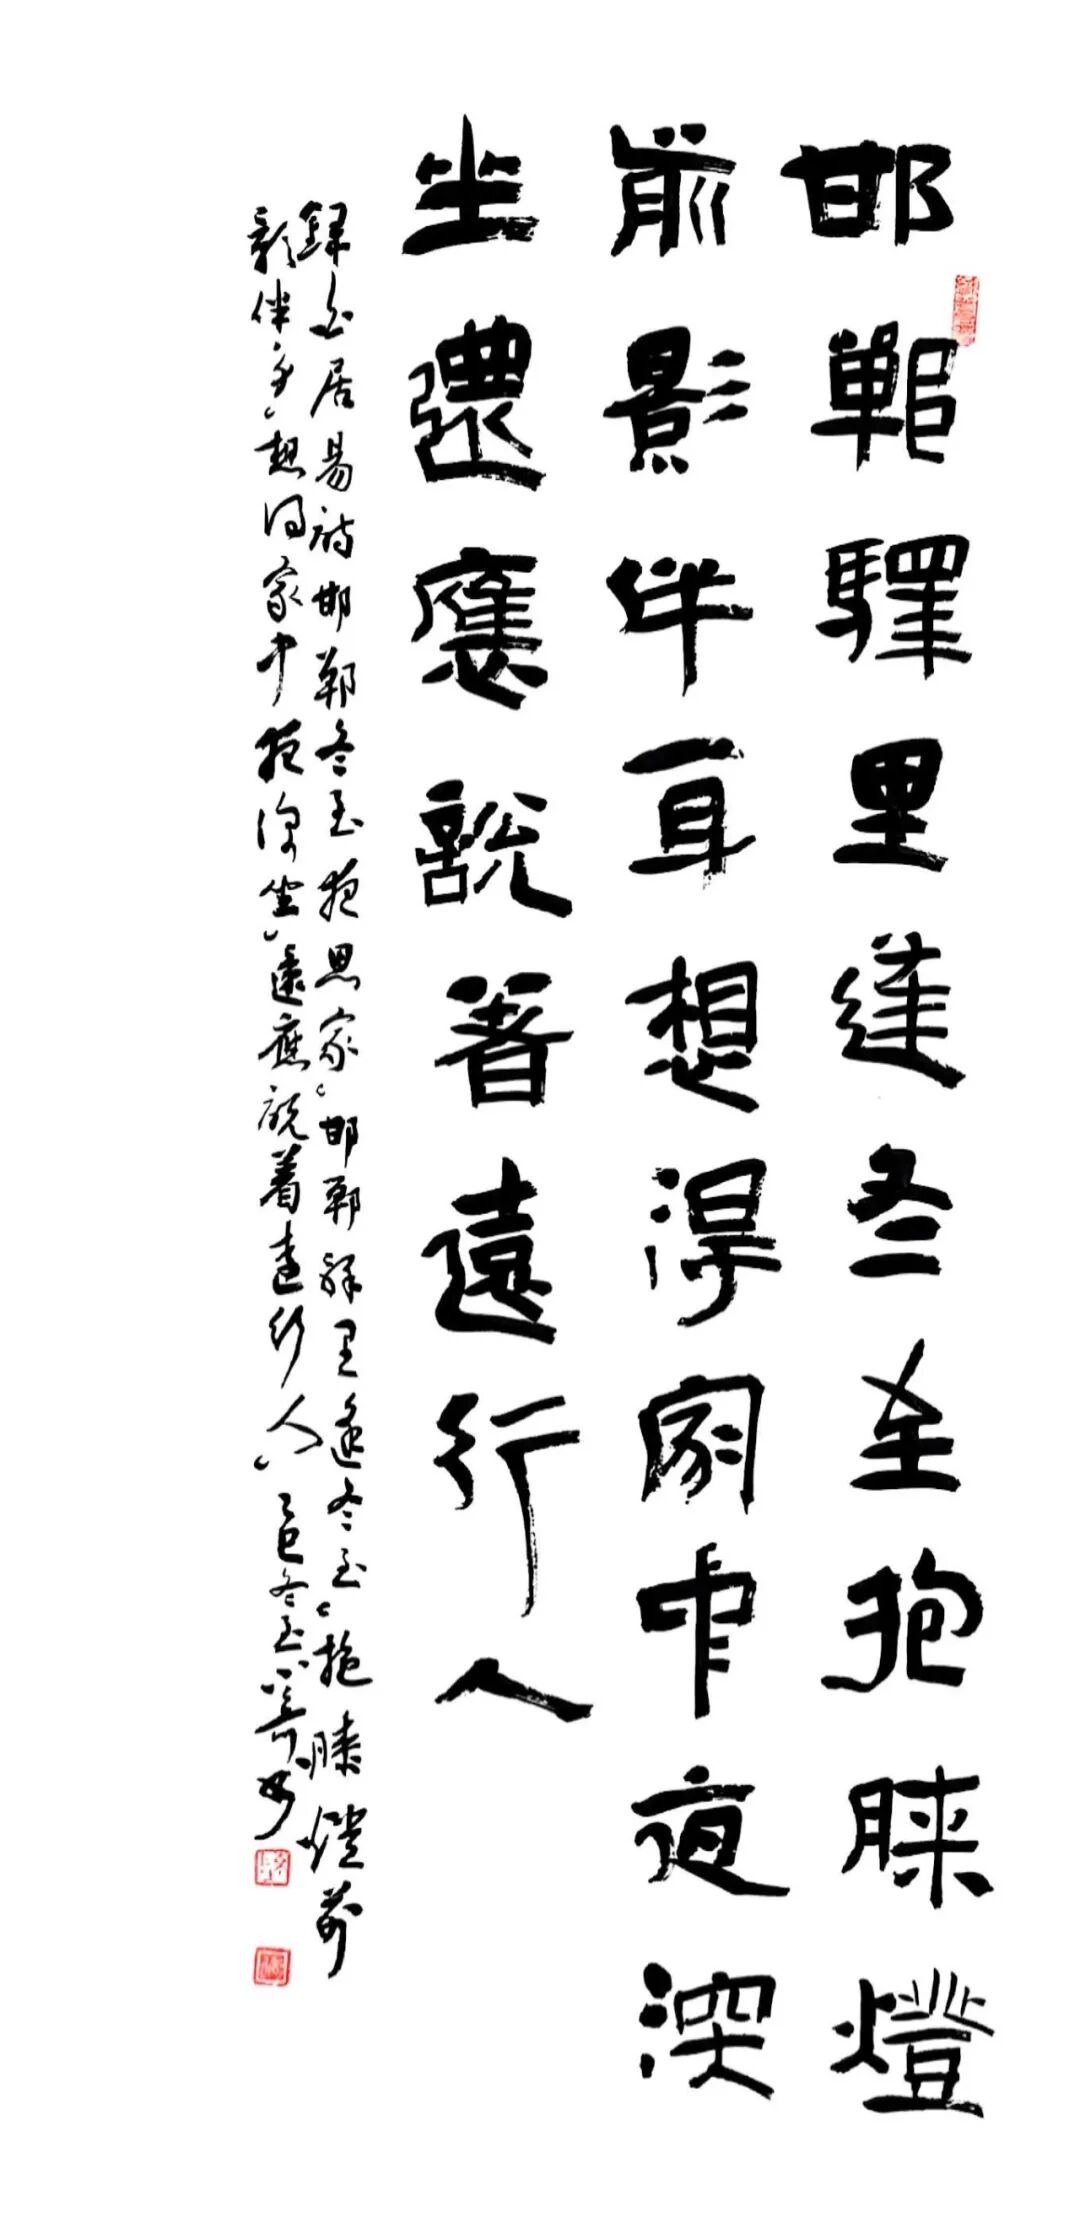 邯鄲驛里逢冬至抱膝燈
前影伴身想得家中夜深
坐還應說著遠行人
錄白居易詩邯鄲冬至夜思家邯鄲驛里逢冬至抱膝燈前
影伴身想得家中夜深坐還應說着遠行人乙巳冬至